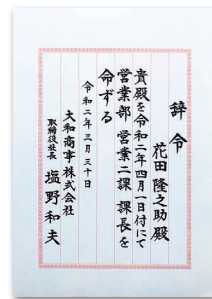 辞令
花田隆之助殿
貴殿を令和二年四月一日付にて
営業部 営業二課 課長を
命ずる
令和二年三月三十日
大和商事株式会社
取締役社長 塩野和夫